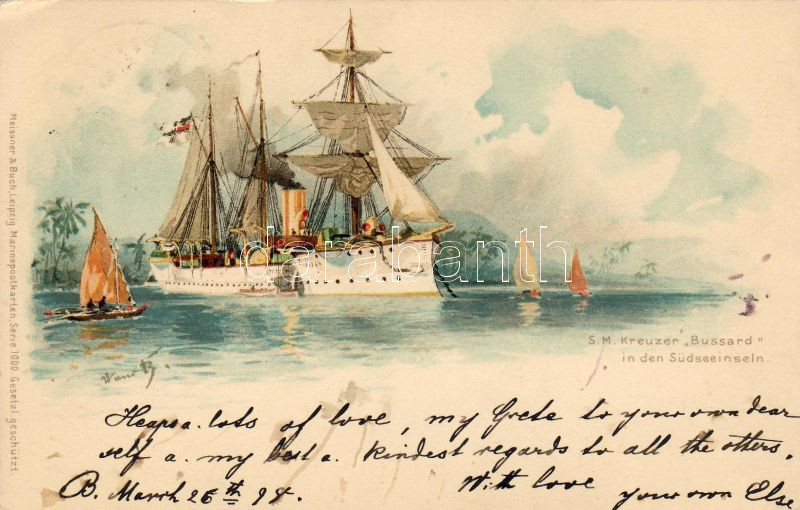 Meissner & Buch, Leipzig Marinepostkarten Serie 1000. Gesetzl. geschützt
darabanth
S. M. Kreuzer „Bussard"
in den Südseeinseln.
Heaps a. lots of love, my Grete to your own dear
self a. my best a. kindest regards to all the others.
B. March 26th 99.
With love
your own Else